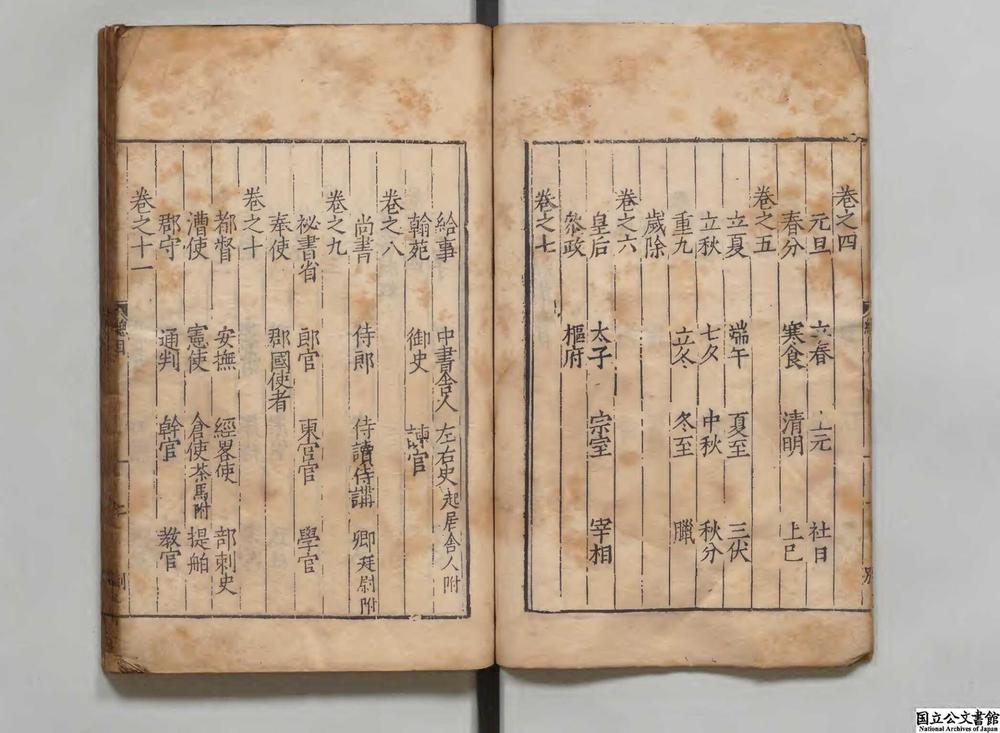 卷之四
元旦 立春 上元 社日
春分 寒食 清明 上巳
卷之五
立夏 端午 夏至 三伏
立秋 七夕 中秋 秋分
重九 立冬 冬至 臘
歲除
卷之六
皇后 太子 宗室 宰相
參政 樞府
卷之七
給事 中書舍人 左右史起居舍人附
翰苑 御史 諫官
卷之八
尚書 侍郎 侍讀侍講 卿廷尉附
卷之九
祕書省 郎官 東宮官 學官
奉使 郡國使者
卷之十
都督 安撫 經畧使 部刺史
漕使 憲使 倉使茶馬附 提舶
郡守 通判 幹官 教官
卷之十一
総目
国立公文書館
National Archives of Japan